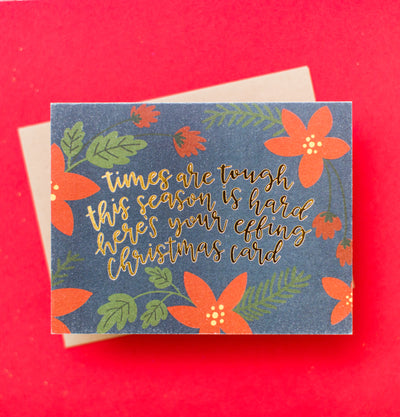 times are tough
this season is hard
here's your effing
Christmas card